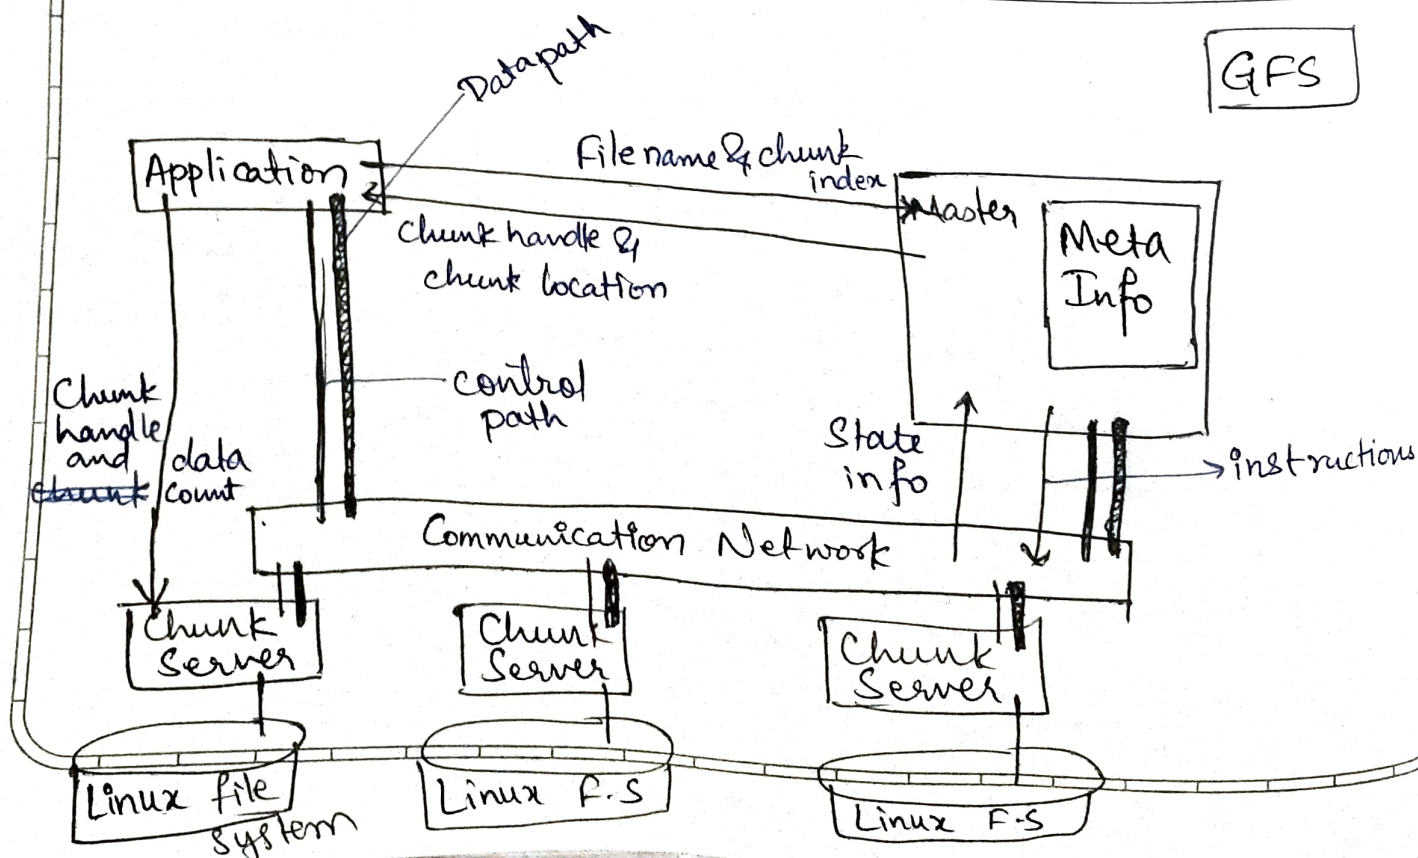 Datapath
GFS
Application
File name & chunk
index
Master
Meta
Info
Chunk handle &
chunk location
Chunk
handle
and data
chunk count
control
path
State
info
instructions
Communication Network
Chunk
Server
Chunk
Server
Chunk
Server
Linux file
system
Linux F.S
Linux F.S